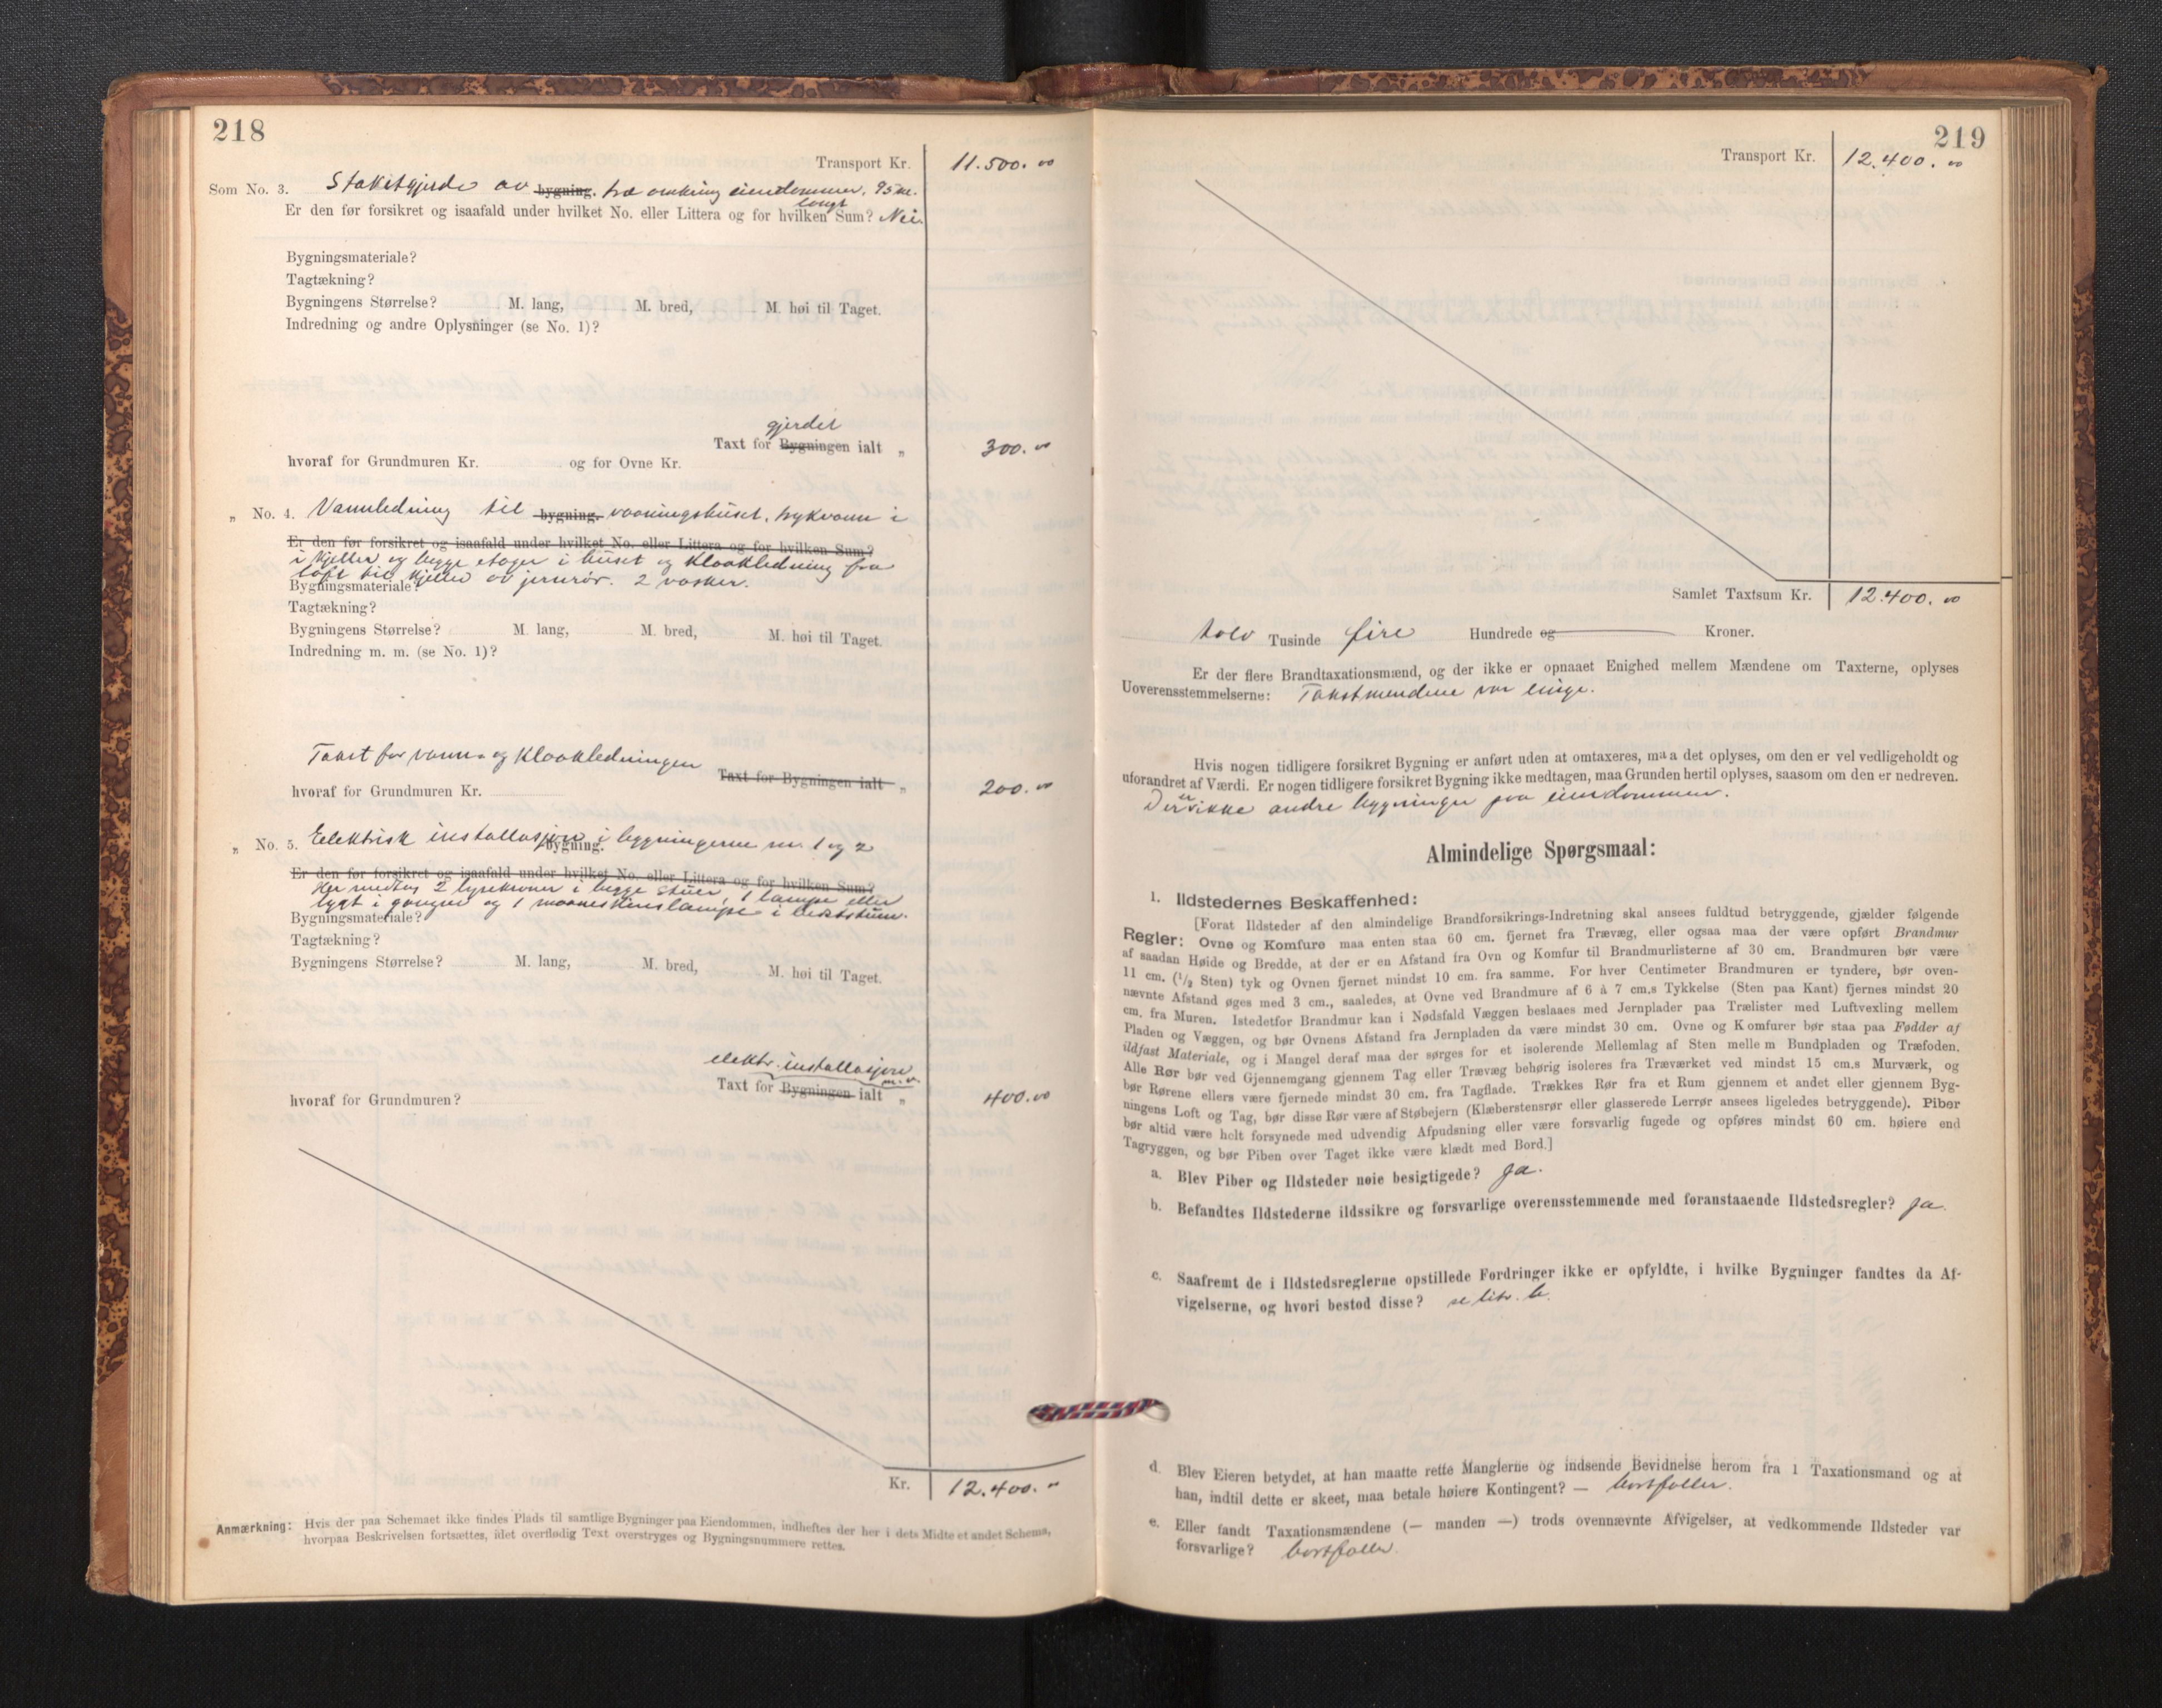 218
Transport Kr. 11.500.00
Som No. 3. Stakitgjerde av bygning. træ omkring eiendommen, 95 m. langt
Er den før forsikret og isaafald under hvilket No. eller Littera og for hvilken Sum? Nei.
Bygningsmateriale?
Tagtækning?
Bygningens Størrelse? M. lang, M. bred, M. høi til Taget.
Indredning og andre Oplysninger (se No. 1)?
gjerdet
Taxt for Bygningen ialt „ 300.00
hvoraf for Grundmuren Kr. og for Ovne Kr.
„ No. 4. Vannledning til bygning. vaaningshuset, trykvann i
Er den før forsikret og isaafald under hvilket No. eller Littera og for hvilken Sum?
i kjeller og begge etager i huset og kloakledning fra
loft til kjeller av jernrør. 2 vasker.
Bygningsmateriale?
Tagtækning?
Bygningens Størrelse? M. lang, M. bred, M. høi til Taget.
Indredning m. m. (se No. 1)?
Takst for vann- og kloakledningen Taxt for Bygningen ialt „ 200.00
hvoraf for Grundmuren Kr.
„ No. 5. Elektrisk installasjon i bygningerne nr. 1 og 2
bygning.
Er den før forsikret og isaafald under hvilket No. eller Littera og for hvilken Sum?
Her medtas 2 lysekroner i begge stuer, 1 lampe eller
lygt i gangen og 1 maaneskinslampe i
Bygningsmateriale?
Tagtækning?
Bygningens Størrelse? M. lang, M. bred, M. høi til Taget.
elektr. installasjon m.v.
Taxt for Bygningen ialt „ 400.00
hvoraf for Grundmuren?
Kr. 12.400.00
Anmærkning: Hvis der paa Schemaet ikke findes Plads til samtlige Bygninger paa Eiendommen, indheftes der her i dets Midte et andet Schema,
hvorpaa Beskrivelsen fortsættes, idet overflødig Text overstryges og Bygningsnummere rettes.
219
Transport Kr. 12.400.00
Samlet Taxtsum Kr. 12.400.00
tolv Tusinde fire Hundrede og Kroner.
Er der flere Brandtaxationsmænd, og der ikke er opnaaet Enighed mellem Mændene om Taxterne, oplyses
Uoverensstemmelserne: Takstmendene var enige.
Hvis nogen tidligere forsikret Bygning er anført uden at omtaxeres, maa det oplyses, om den er vel vedligeholdt og
uforandret af Værdi. Er nogen tidligere forsikret Bygning ikke medtagen, maa Grunden hertil oplyses, saasom om den er nedreven.
Der er ikke andre bygninger paa eiendommen.
Almindelige Spørgsmaal:
1. Ildstedernes Beskaffenhed:
[Forat Ildsteder af den almindelige Brandforsikrings-Indretning skal ansees fuldtud betryggende, gjælder følgende
Regler: Ovne og Komfure maa enten staa 60 cm. fjernet fra Trævæg, eller ogsaa maa der være opført Brandmur
af saadan Høide og Bredde, at der er en Afstand fra Ovn og Komfur til Brandmurlisterne af 30 cm. Brandmuren bør være
11 cm. (1/2 Sten) tyk og Ovnen fjernet mindst 10 cm. fra samme. For hver Centimeter Brandmuren er tyndere, bør oven-
nævnte Afstand øges med 3 cm., saaledes, at Ovne ved Brandmure af 6 à 7 cm.s Tykkelse (Sten paa Kant) fjernes mindst 20
cm. fra Muren. Istedetfor Brandmur kan i Nødsfald Væggen beslaaes med Jernplader paa Trælister med Luftvexling mellem
Pladen og Væggen, og bør Ovnens Afstand fra Jernpladen da være mindst 30 cm. Ovne og Komfurer bør staa paa Fødder af
ildfast Materiale, og i Mangel deraf maa der sørges for et isolerende Mellemlag af Sten mellem Bundpladen og Træfoden.
Alle Rør bør ved Gjennemgang gjennem Tag eller Trævæg behørig isoleres fra Træværket ved mindst 15 cm.s Murværk, og
bør Rørene ellers være fjernede mindst 30 cm. fra Tagflade. Trækkes Rør fra et Rum gjennem et andet eller gjennem Byg-
ningens Loft og Tag, bør disse Rør være af Støbejern (Klæberstensrør eller glasserede Lerrør ansees ligeledes betryggende). Piber
bør altid være helt forsynede med udvendig Afpudsning eller være forsvarlig fugede og opføres mindst 60 cm. høiere end
Tagryggen, og bør Piben over Taget ikke være klædt med Bord.]
a. Blev Piber og Ildsteder nøie besigtigede? Ja.
b. Befandtes Ildstederne ildssikre og forsvarlige overensstemmende med foranstaaende Ildstedsregler? Ja.
c. Saafremt de i Ildstedsreglerne opstillede Fordringer ikke er opfyldte, i hvilke Bygninger fandtes da Af-
vigelserne, og hvori bestod disse? se litr. b.
d. Blev Eieren betydet, at han maatte rette Manglerne og indsende Bevidnelse herom fra 1 Taxationsmand og at
han, indtil dette er skeet, maa betale høiere Kontingent? — bortfaller.
e. Eller fandt Taxationsmændene (— manden —) trods ovennævnte Afvigelser, at vedkommende Ildsteder var
forsvarlige? bortfaller.